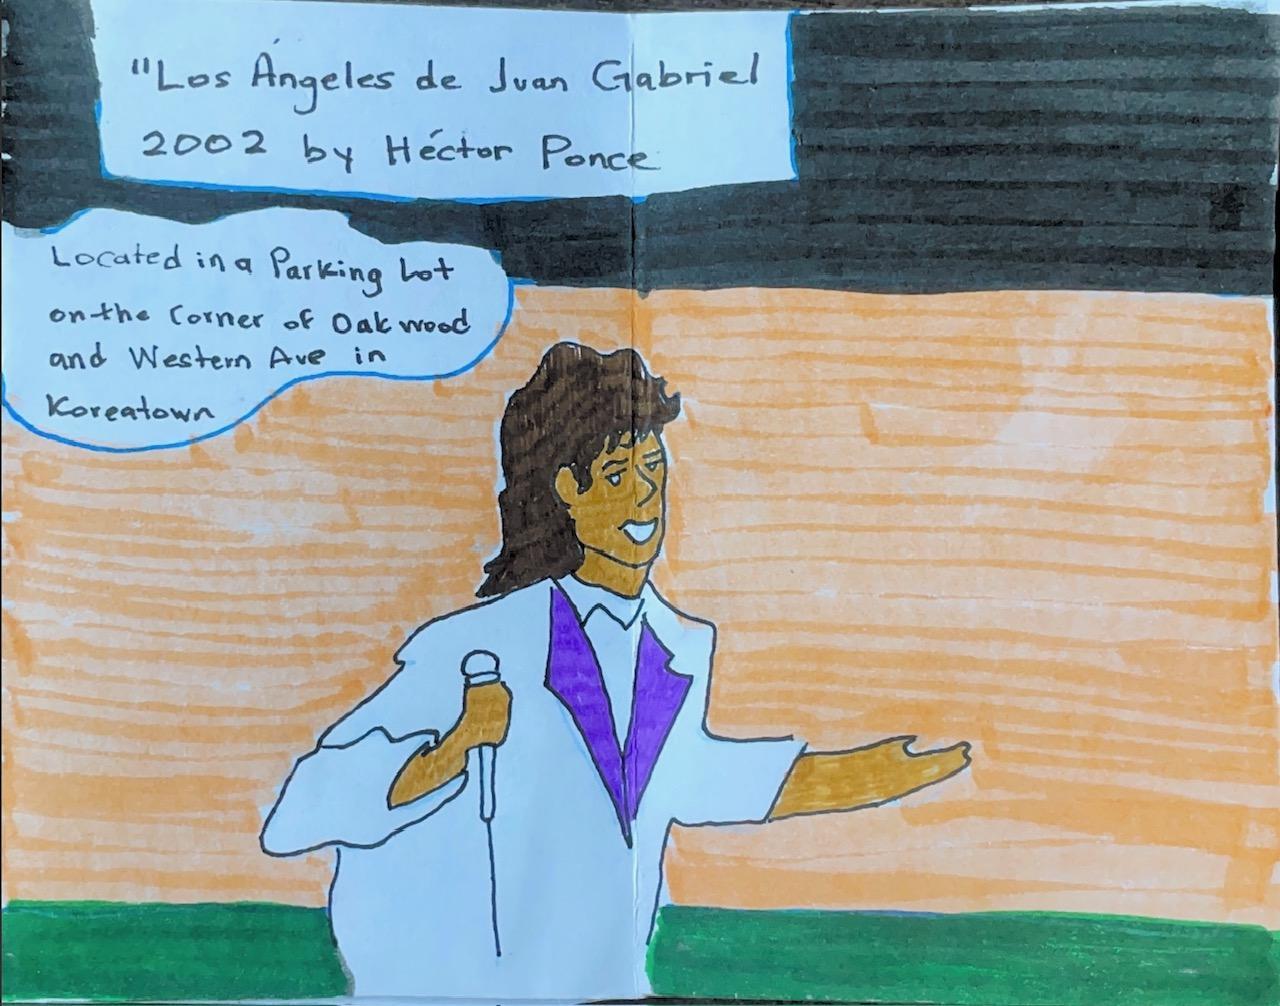 "Los Ángeles de Juan Gabriel
2002 by Héctor Ponce
Located in a Parking Lot
on the Corner of Oakwood
and Western Ave in
Koreatown